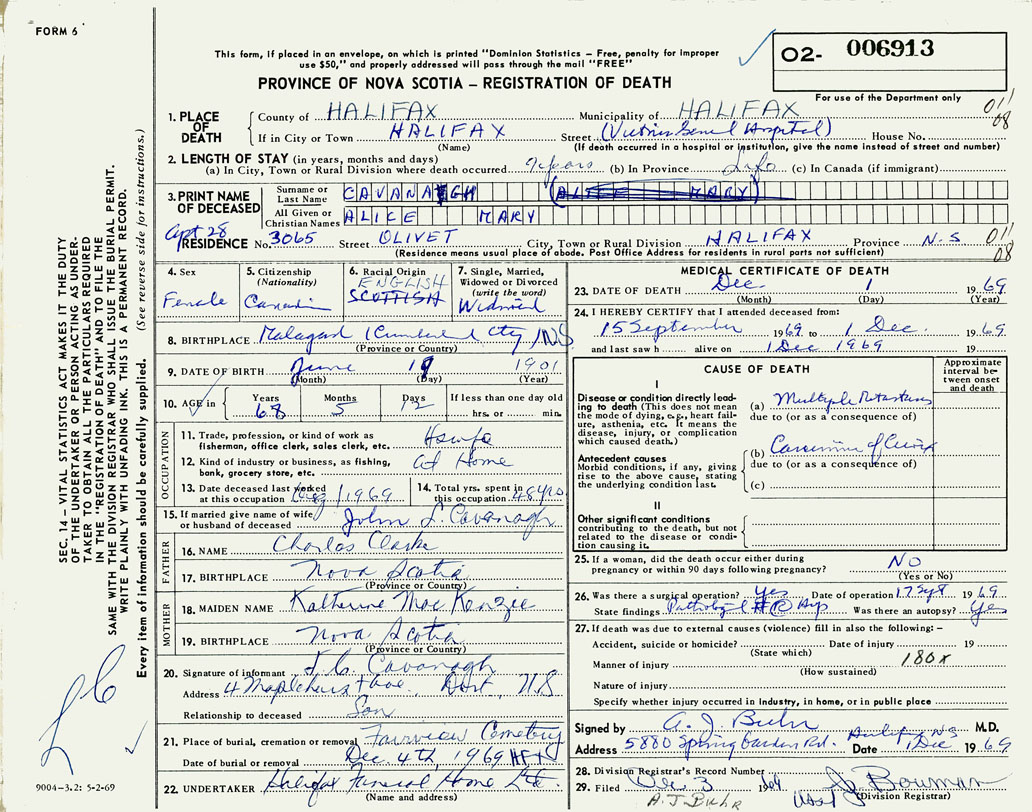 FORM 6
This form, if placed in an envelope, on which is printed "Dominion Statistics – Free, penalty for improper
use $50," and properly addressed will pass through the mail "FREE"
PROVINCE OF NOVA SCOTIA – REGISTRATION OF DEATH
O2- 006913
For use of the Department only
011
08
1. PLACE OF DEATH
County of HALIFAX Municipality of HALIFAX
If in City or Town HALIFAX Street (Victoria General Hospital) House No.
(Name) (If death occurred in a hospital or institution, give the name instead of street and number)
2. LENGTH OF STAY (in years, months and days)
(a) In City, Town or Rural Division where death occurred 9 years (b) In Province Life (c) In Canada (if immigrant)
3. PRINT NAME OF DECEASED
Surname or Last Name CAVANAGH (ALICE MARY)
All Given or Christian Names ALICE MARY
Apt 28
RESIDENCE No. 3065 Street OLIVET City, Town or Rural Division HALIFAX Province N.S
011
08
(Residence means usual place of abode. Post Office Address for residents in rural parts not sufficient)
4. Sex
Female
5. Citizenship
(Nationality)
Canadian
6. Racial Origin
ENGLISH
SCOTTISH
7. Single, Married,
Widowed or Divorced
(write the word)
Widowed
8. BIRTHPLACE (Cumberland Cty) N.S.
(Province or Country)
9. DATE OF BIRTH June 19 1901
(Month) (Day) (Year)
10. AGE in
Years Months Days If less than one day old
68 5 12 hrs. or min.
OCCUPATION
11. Trade, profession, or kind of work as
fisherman, office clerk, sales clerk, etc. Hswfe
12. Kind of industry or business, as fishing,
bank, grocery store, etc. at Home
13. Date deceased last worked
at this occupation 1969
14. Total yrs. spent in
this occupation 48 yrs
15. If married give name of wife
or husband of deceased John L. Cavanagh
FATHER
16. NAME Charles Clarke
17. BIRTHPLACE Nova Scotia
(Province or Country)
MOTHER
18. MAIDEN NAME Katherine MacKenzie
19. BIRTHPLACE Nova Scotia
(Province or Country)
20. Signature of informant Cavanagh
Address 4 Dart. N.S
Relationship to deceased Son
21. Place of burial, cremation or removal Fairview Cemetery
Date of burial or removal Dec. 4th, 1969 HFX
22. UNDERTAKER Halifax Funeral Home Ltd.
(Name and address)
MEDICAL CERTIFICATE OF DEATH
23. DATE OF DEATH Dec. 1 1969
(Month) (Day) (Year)
24. I HEREBY CERTIFY that I attended deceased from:
15 September 1969 to 1 Dec. 1969
and last saw h alive on 1 Dec 1969 19
CAUSE OF DEATH
Approximate
interval be-
tween onset
and death
I
Disease or condition directly lead-
ing to death (This does not mean
the mode of dying, e.g., heart fail-
ure, asthenia, etc. It means the
disease, injury, or complication
which caused death.)
(a) Multiple Metastases
due to (or as a consequence of)
Antecedent causes
Morbid conditions, if any, giving
rise to the above cause, stating
the underlying condition last.
(b) Carcinoma of Cervix
due to (or as a consequence of)
(c)
II
Other significant conditions
contributing to the death, but not
related to the disease or condi-
tion causing it.
25. If a woman, did the death occur either during
pregnancy or within 90 days following pregnancy? NO
(Yes or No)
26. Was there a surgical operation? Yes Date of operation 17 Sept 1969
State findings Was there an autopsy? Yes
27. If death was due to external causes (violence) fill in also the following: –
Accident, suicide or homicide? Date of injury 19
(State which)
180x
Manner of injury
(How sustained)
Nature of injury
Specify whether injury occurred in industry, in home, or in public place
Signed by A. J. Buhr M.D.
Address 5880 Spring Garden Rd. Halifax N.S. Date 1 Dec 1969
28. Division Registrar's Record Number
29. Filed Dec. 3 1969 J. Bowman
(Division Registrar)
A.J. BUHR
SEC. 14 – VITAL STATISTICS ACT MAKES IT THE DUTY
OF THE UNDERTAKER OR PERSON ACTING AS UNDER-
TAKER TO OBTAIN ALL THE PARTICULARS REQUIRED
IN THE "REGISTRATION OF DEATH" AND TO FILE THE
SAME WITH THE DIVISION REGISTRAR WHO SHALL ISSUE THE BURIAL PERMIT.
WRITE PLAINLY WITH UNFADING INK. THIS IS A PERMANENT RECORD.
Every item of information should be carefully supplied. (See reverse side for instructions.)
9004-3.2: 5-2-69